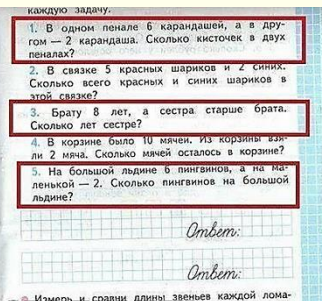 каждую задачу.
1. В одном пенале 6 карандашей, а в дру-
гом — 2 карандаша. Сколько кисточек в двух
пеналах?
2. В связке 5 красных шариков и 2 синих.
Сколько всего красных и синих шариков в
этой связке?
3. Брату 8 лет, а сестра старше брата.
Сколько лет сестре?
4. В корзине было 10 мячей. Из корзины взя-
ли 2 мяча. Сколько мячей осталось в корзине?
5. На большой льдине 6 пингвинов, а на ма-
ленькой — 2. Сколько пингвинов на большой
льдине?
Ответ:
Ответ:
Измерь и сравни длины звеньев каждой лома-